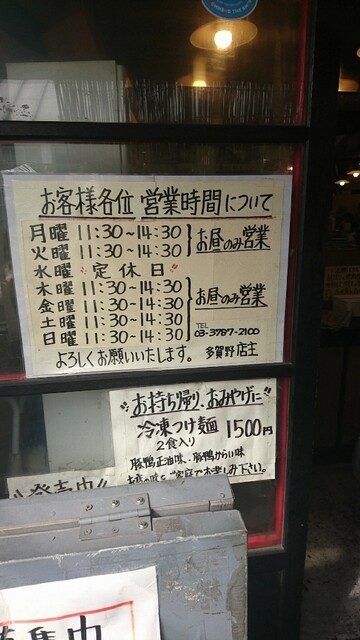 お客様各位 営業時間について
月曜 11:30~14:30
火曜 11:30~14:30
お昼のみ営業
水曜 定休日
木曜 11:30~14:30
金曜 11:30~14:30
土曜 11:30~14:30
日曜 11:30~14:30
お昼のみ営業
TEL
03-3787-2100
よろしくお願いいたします。 多賀野店主
お持ち帰り、おみやげに
冷凍つけ麺 1500円
2食入り
豚鴨正油味、豚鴨からい味
お店の味をご家庭でお楽しみ下さい。
発売中!!
集中